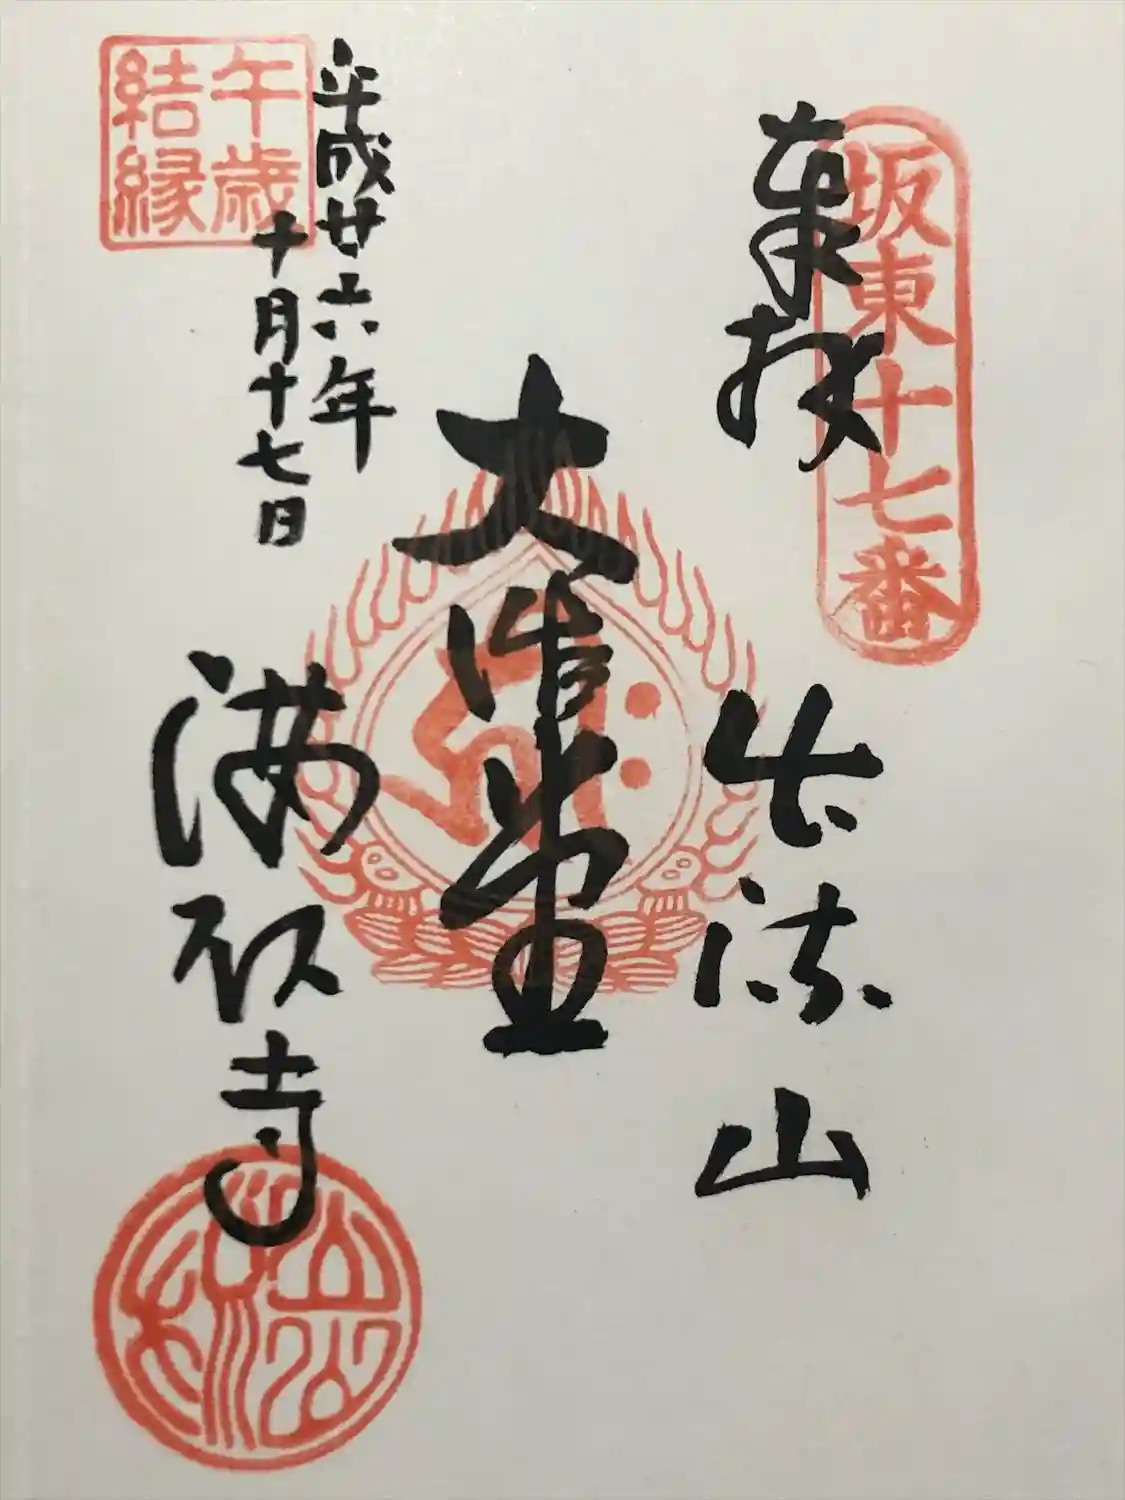 坂東十七番
奉拝
出流山
大悲堂
平成廿六年
十月十七日
満願寺
午歳
結縁